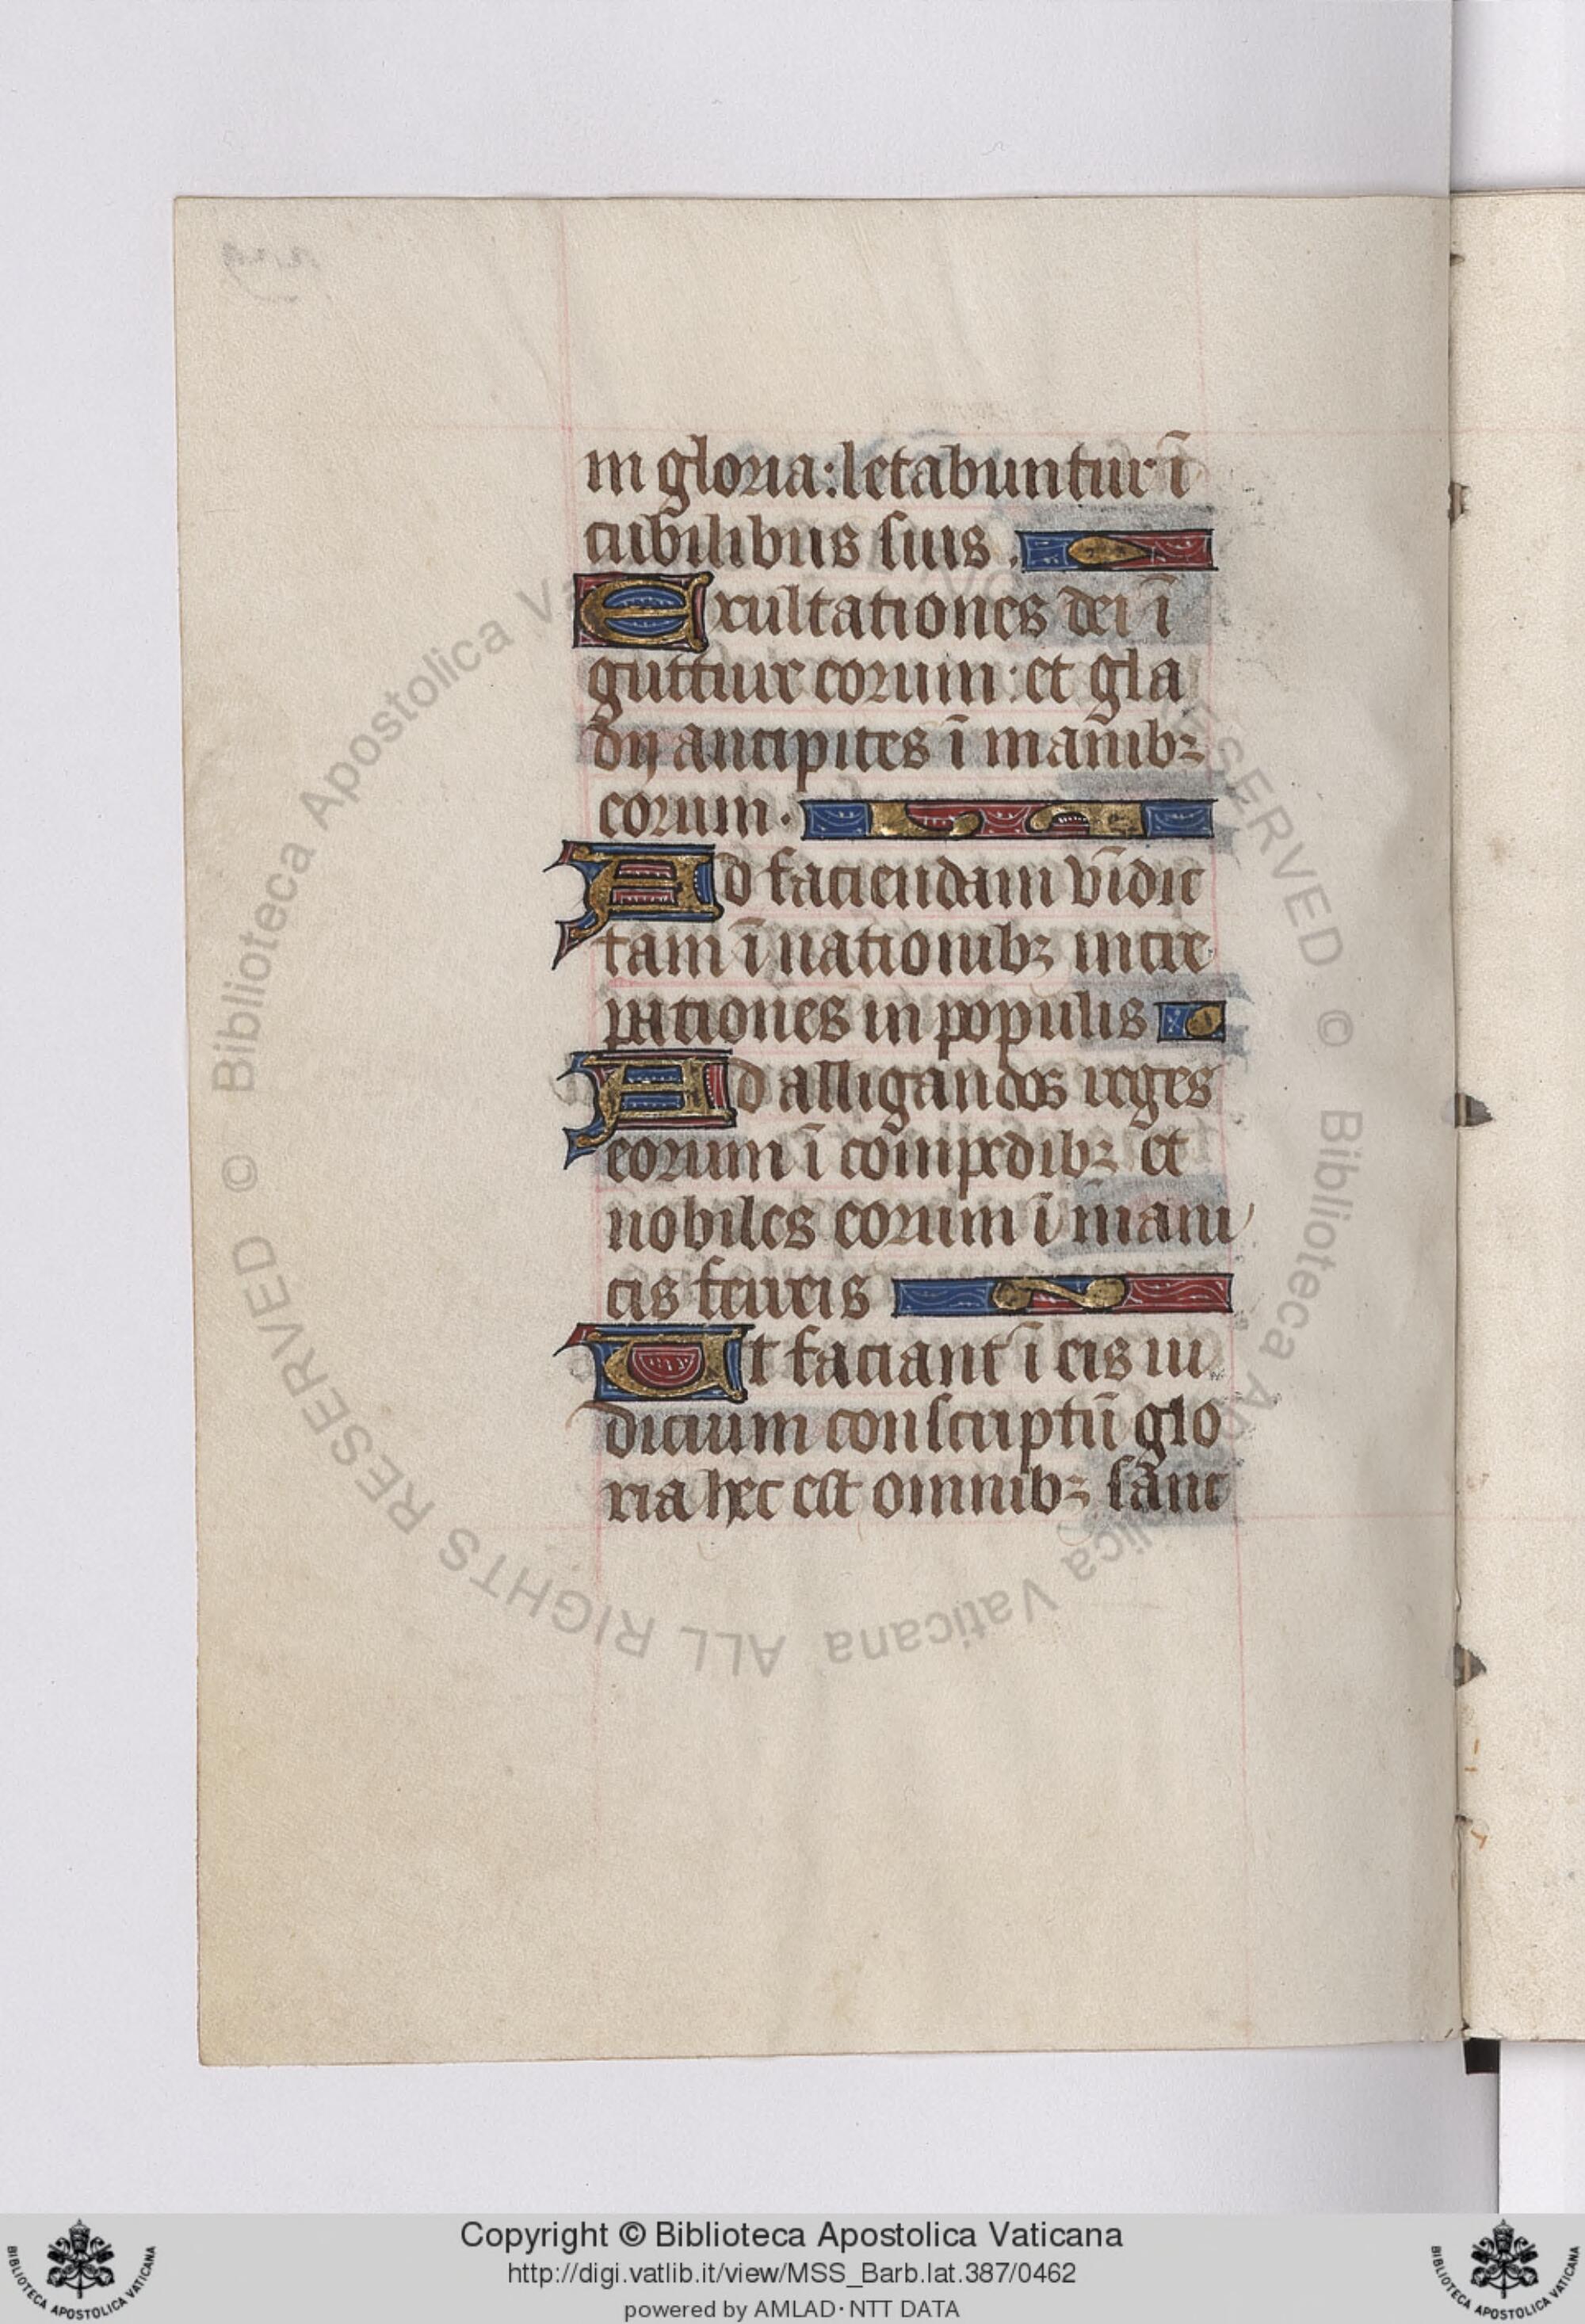 in gloria: letabuntur ī
cubilibus suis.
Exultationes dei ī
gutture eorum: et gla
dij ancipites ī manibꝫ
eorum.
Ad faciendam vīdic
tam ī nationibꝫ incre
pationes in populis
Ad alligandos reges
eorum ī compedibꝫ et
nobiles eorum ī mani
cis ferreis
Ut faciant ī eis iu
dicium conscriptū glo
ria hec est omnibꝫ sanc
© Biblioteca Apostolica Vaticana ALL RIGHTS RESERVED
Copyright © Biblioteca Apostolica Vaticana
http://digi.vatlib.it/view/MSS_Barb.lat.387/0462
powered by AMLAD·NTT DATA
BIBLIOTECA APOSTOLICA VATICANA
BIBLIOTECA APOSTOLICA VATICANA